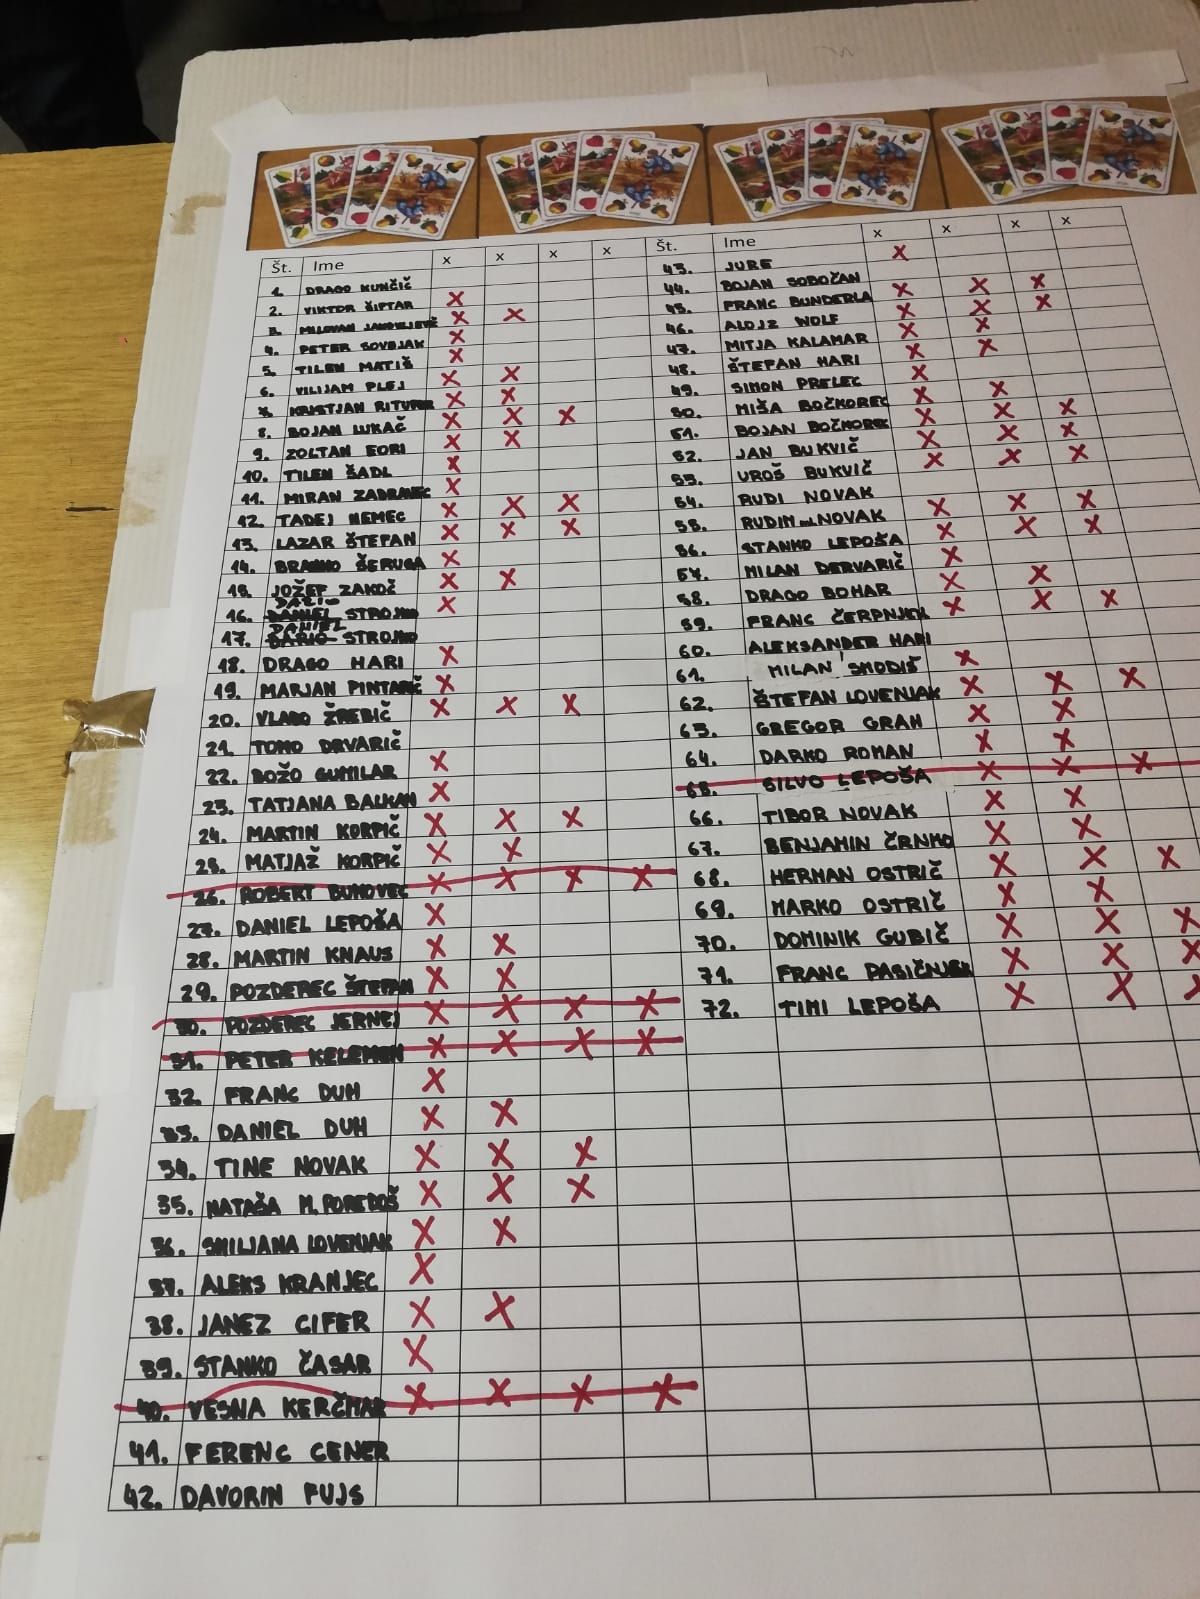 Št. Ime x x x x
1. DRAGO KUNČIČ
2. VIKTOR ŠIPTAR X
3. MILOVAN X X
4. PETER SOVDJAK X
5. TILEN MATIŠ X
6. VILIJAM PLEJ X X
7. KRISTJAN RITUPER X X
8. BOJAN LUKAČ X X X
9. ZOLTAN EORI X X
10. TILEN ŠADL X
11. MIRAN ZADRAVEC X
12. TADEJ NEMEC X X X
13. LAZAR ŠTEFAN X X X
14. BRANKO ŠERUGA X
15. JOŽEF ZAKOČ X X
16. DANIEL DARIO STROJKO X
17. DARIO DANIEL STROJKO
18. DRAGO HARI X
19. MARJAN PINTARIČ X
20. VLADO ŽREBIČ X X X
21. TOMO DRVARIČ
22. BOŽO GUMILAR X
23. TATJANA BALKAN X
24. MARTIN KORPIČ X X X
25. MATJAŽ KORPIČ X X
26. ROBERT BUKOVEC X X X X
27. DANIEL LEPOŠA X
28. MARTIN KNAUS X X
29. POZDEREC ŠTEFAN X X
30. POZDEREC JERNEJ X X X X
31. PETER KELEMEN X X X X
32. FRANC DUH X
33. DANIEL DUH X X
34. TINE NOVAK X X X
35. NATAŠA M. POREDOŠ X X X
36. SMILJANA LOVENJAK X X
37. ALEKS KRANJEC X
38. JANEZ CIFER X X
39. STANKO ČASAR X
40. VESNA KERČMAR X X X X
41. FERENC CENER
42. DAVORIN FUJS
Št. Ime x x x x
43. JURE X
44. BOJAN SOBOČAN
45. FRANC BUNDERLA X X X
46. ALOJZ WOLF X X X
47. MITJA KALAMAR X X
48. ŠTEFAN HARI X X
49. SIMON PRELEC X
50. MIŠA BOČKOREC X X
51. BOJAN BOČKOREC X X X
52. JAN BUKVIČ X X X
53. UROŠ BUKVIČ X X X
54. RUDI NOVAK
55. RUDI ml. NOVAK X X X
56. STANKO LEPOŠA X X X
57. MILAN DERVARIČ X
58. DRAGO BOHAR X X
59. FRANC ČERPNJEK X X X
60. ALEKSANDER HARI
61. MILAN SMODIŠ X
62. ŠTEFAN LOVENJAK X X X
63. GREGOR GRAH X X
64. DARKO ROMAN X X
65. SILVO LEPOŠA X X X
66. TIBOR NOVAK X X
67. BENJAMIN ČRNKO X X
68. HERMAN OSTRIČ X X X
69. MARKO OSTRIČ X X
70. DOMINIK GUBIČ X X X
71. FRANC PASIČNJEK X X X
72. TIMI LEPOŠA X X X